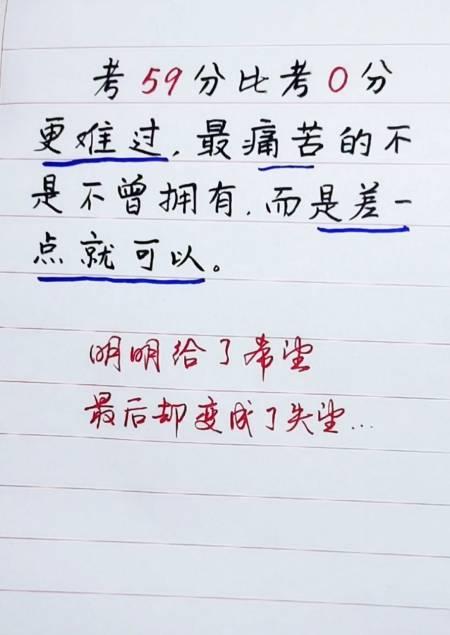 考59分比考0分
更难过，最痛苦的不
是不曾拥有，而是差一
点就可以。
明明给了希望
最后却变成了失望...